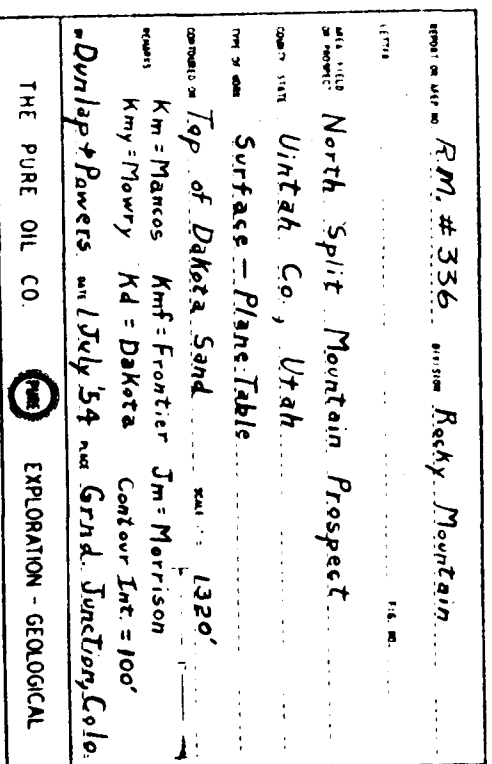 REPORT OR MAP NO. R.M. # 336 DIVISION Rocky Mountain
LETTER FIG. NO.
AREA FIELD OR PROSPECT North Split Mountain Prospect
COUNTY STATE Uintah Co., Utah
TYPE OF WORK Surface - Plane Table
CONTOURED ON Top of Dakota Sand SCALE 1"= 1320'
REMARKS Km = Mancos Kmf = Frontier Jm = Morrison
Kmy = Mowry Kd = Dakota Contour Int. = 100'
Dunlap + Powers DATE 1 July '54 Grnd. Junction, Colo.
THE PURE OIL CO. PURE EXPLORATION - GEOLOGICAL